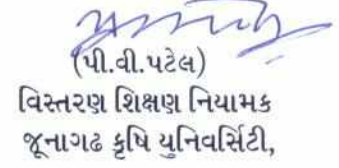 (પી.વી.પટેલ)
વિસ્તરણ શિક્ષણ નિયામક
જૂનાગઢ કૃષિ યુનિવર્સિટી,